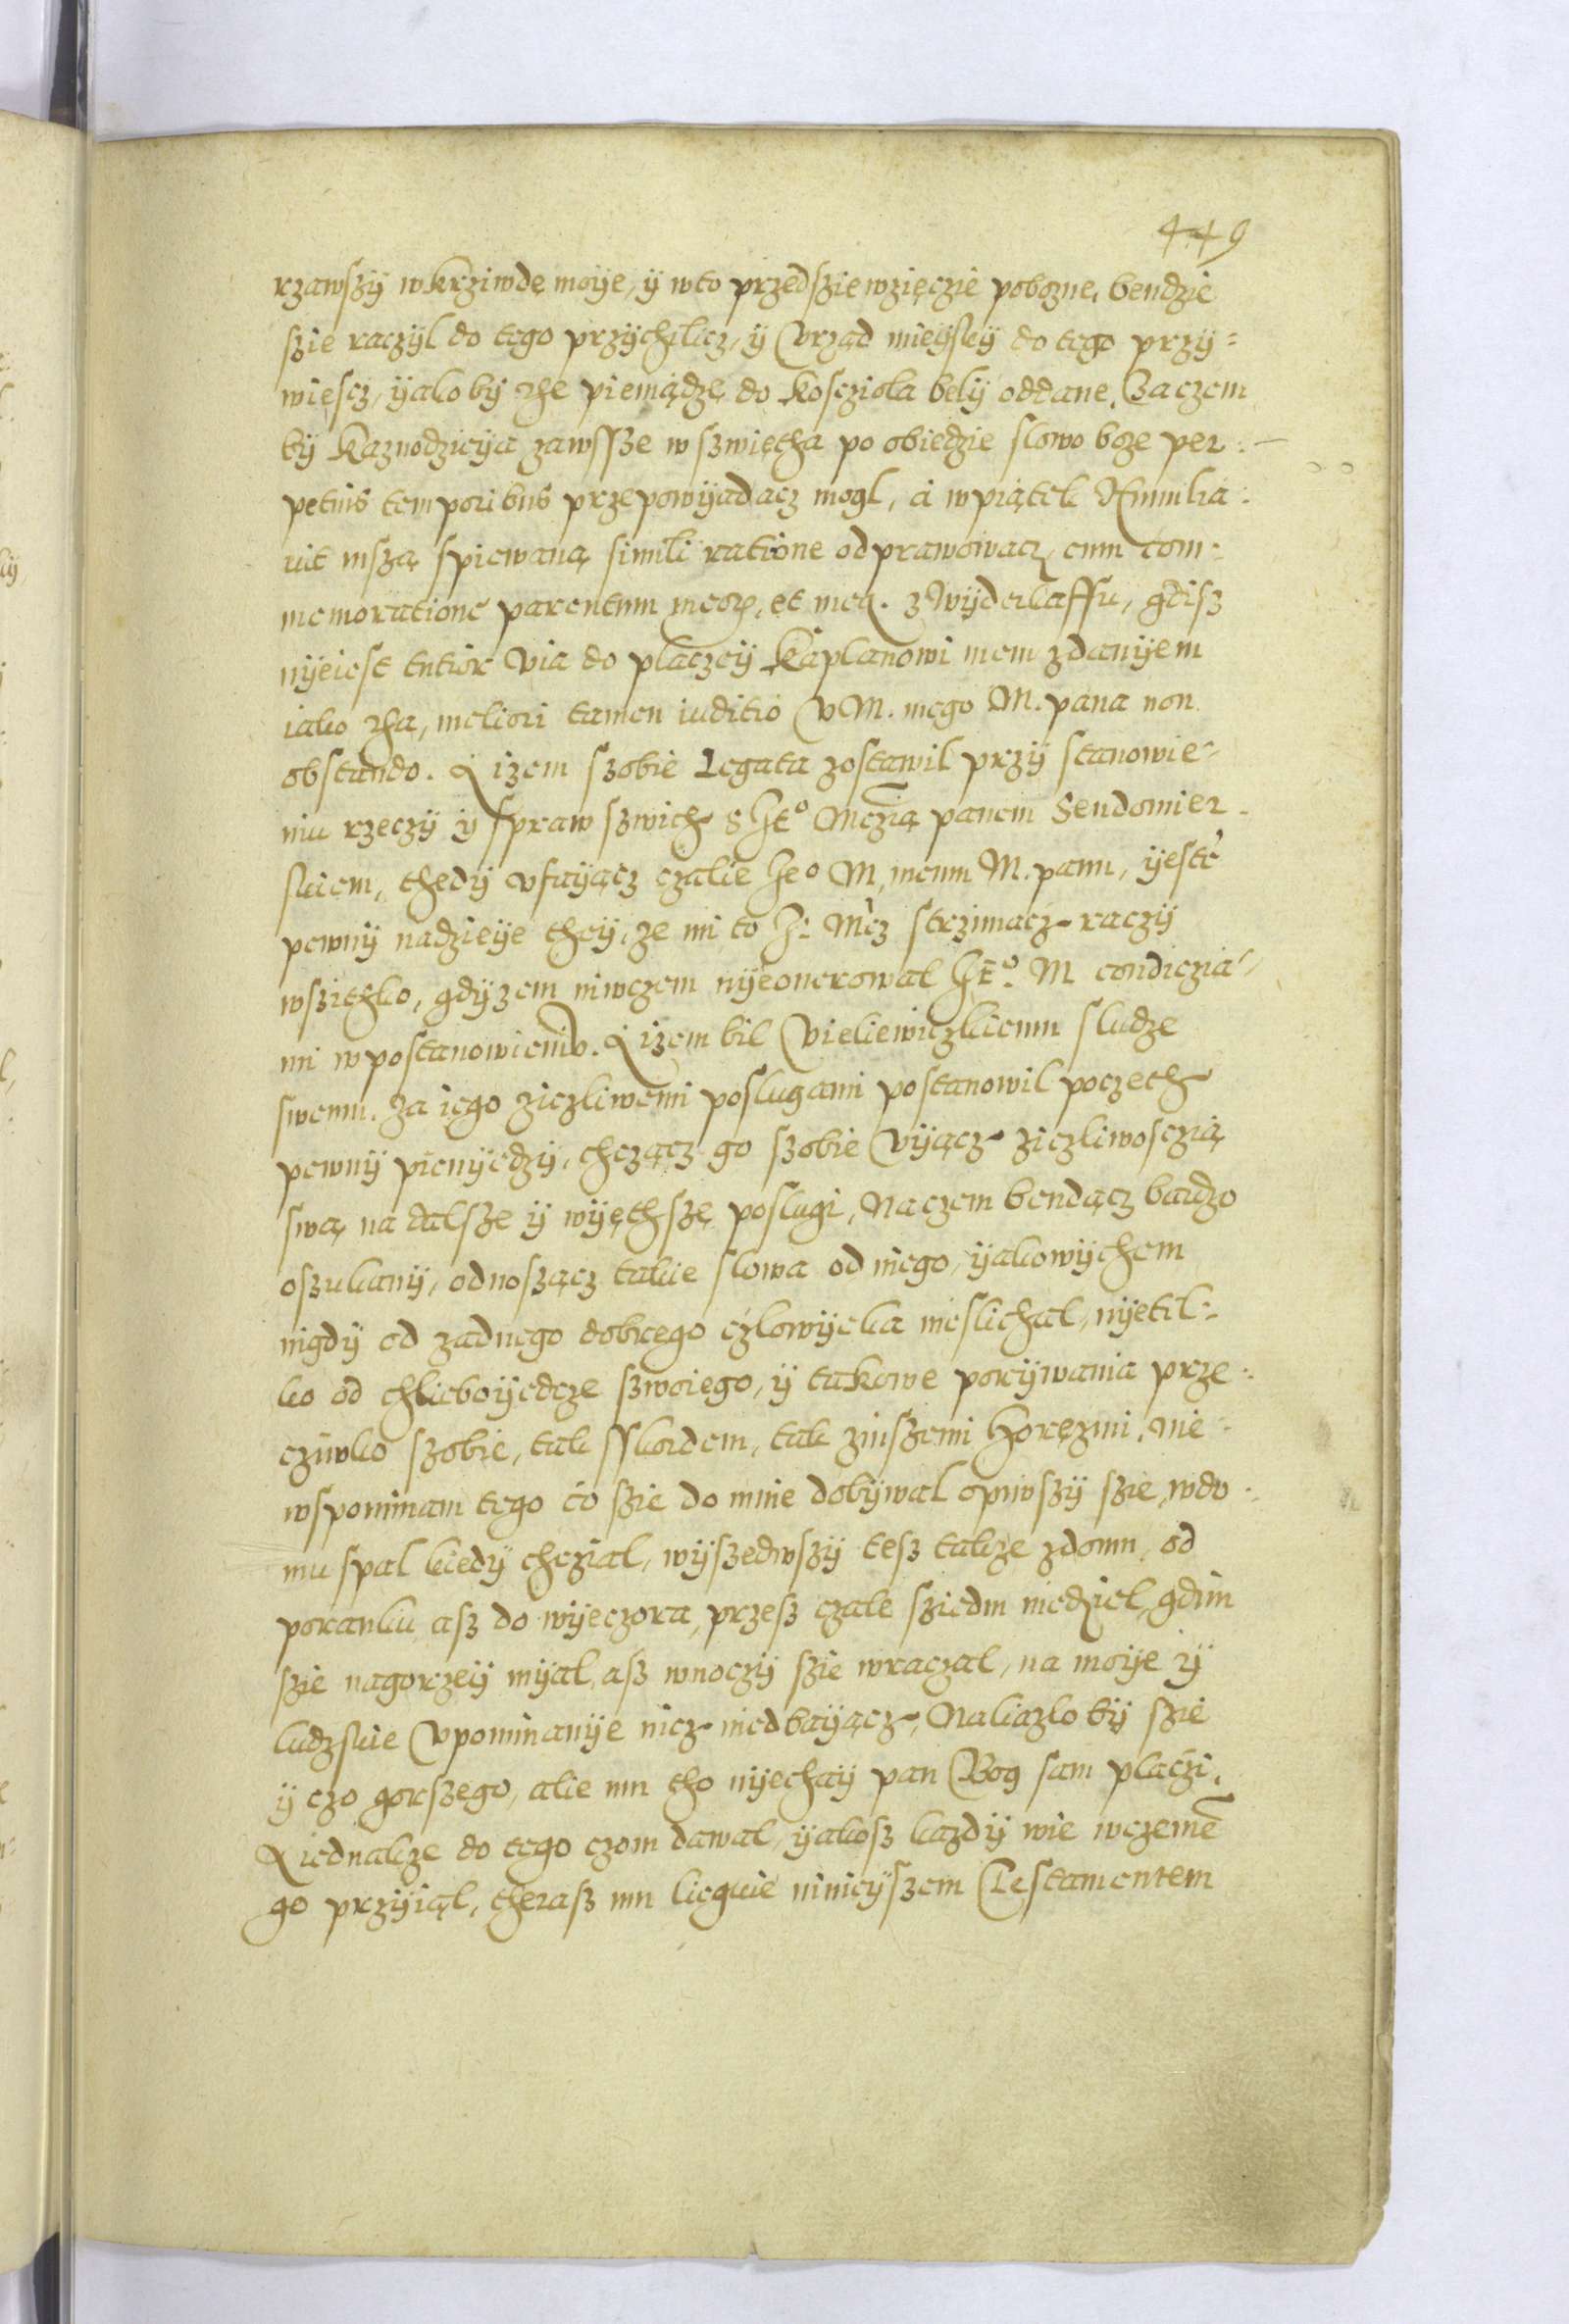 449
rzawszÿ w krziwdę moÿe, ÿ wto przedsziewzięczie pobozne, bendzie
szie raczÿl do tego przÿchilicz, ÿ Vrząd mieÿskÿ do tego przÿ=
wiescz, ÿako bÿ the pieniądze do kosczioła belÿ oddane, Zaczem
bÿ kaznodzieÿa zawssze w szwięcha po obiedzie slowo boze per=
petuis temporibus przepowÿadacz mogl, a w piątek
mszą spiewaną simili ratione odprawowacz cum com=
memoratione parentum meorum, et mea. z Wÿderkaffu, gdisz
nÿeiest tutior via do placzeÿ kaplanowi mem zdanÿem
iako tha, meliori tamen iuditio V M. mego M. pana non
obstando. A izem szobie Legata zostawil przÿ stanowie=
niu rzeczÿ ÿ spraw szwich s Je° Mczią panem Sendomier=
skiem, thedÿ vfaÿącz czalie Je° M, memu M. panu, ÿeste
pewnÿ nadzieÿe theÿ, ze mi to J: Mcz strzimacz raczÿ
wszithko, gdÿzem niwczem nÿeonerowal Je°. M condiczia=
mi w postanowieniv. A izem bil Vieliewiczkiemu sludze
swemu. za iego ziczliwemi poslugami postanowil poczeth
pewnÿ pienÿedzÿ, chcząc go szobie Vÿącz ziczliwosczią
swą na dalsze ÿ wÿęthszę poslugi, Na czem bendącz bardzo
oszukanÿ, odnoszącz takie slowa od niego, ÿakowÿchem
nigdÿ od zadnego dobrego czlowÿeka nieslichal, nÿetil=
ko od chlieboÿedcze szwoiego, ÿ takowe porÿwania prze=
cziwko szobie, tak sskordem, tak zinszemi, nie=
wspominam tego co szie do mnie dobÿwal opiwszÿ szie, wdo=
mu spal kiedÿ chczial, wÿszedwszÿ tesz takze zdomu, od
poranku asz do wÿeczora, przesz czale sziedm niedziel, gdim
szie nagorzeÿ mÿal, asz wnoczÿ szie wraczal, na moÿe ÿ
ludzskie Vpominanÿe nicz niedbaÿącz, Naliazlo bÿ szie
ÿ czo gorszego, alie mu tho nÿechaÿ pan Bog sam placzi,
A iednakze do tego czom dawal, ÿakosz kazdÿ wie wczeme
go przÿiąl, therasz mu liegwie ninieÿszem Testamentem